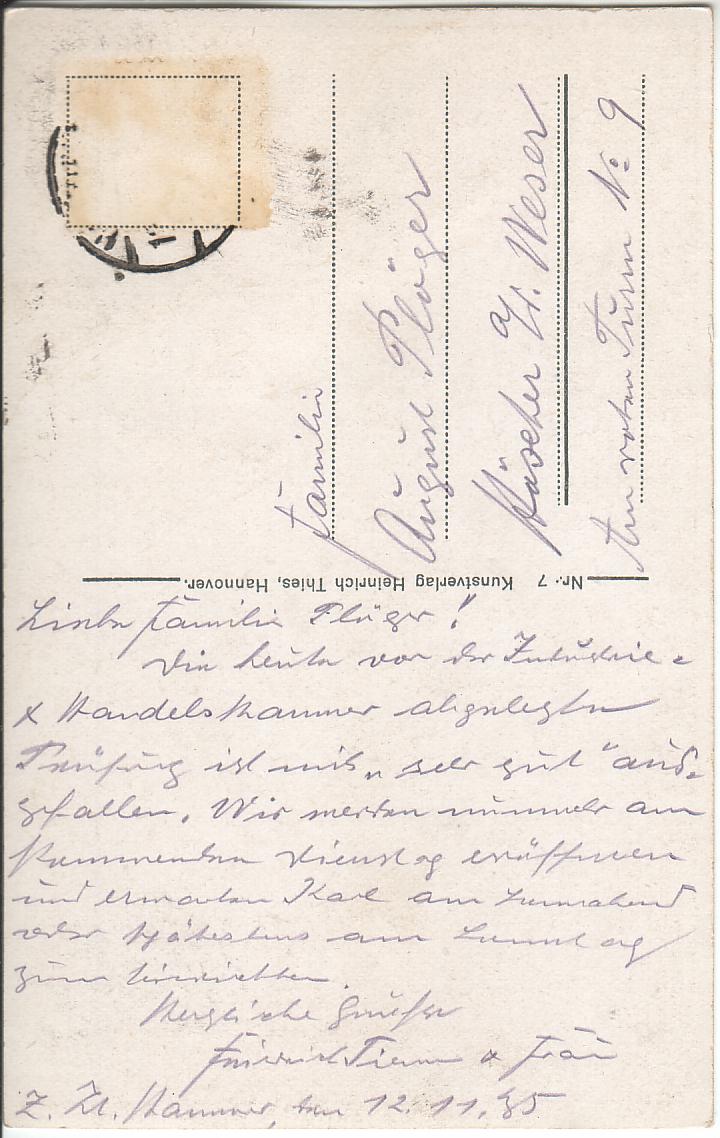 Familie
August Plöger
Höxter a/d. Weser
Am roten Turm No 9
Nr. 7 Kunstverlag Heinrich Thies, Hannover.
Liebe Familie Plöger!
Die heute vor der Industrie-
& Handelskammer abgelegte
Prüfung ist mit „sehr gut" aus-
gefallen. Wir werden nunmehr am
kommenden Dienstag eröffnen
und erwarten Karl am Sonnabend
oder spätestens am Sonntag
zum Einrichten.
Herzliche Grüsse
Friedrich & Frau
Z. Zt. Hannover, den 12.11.35